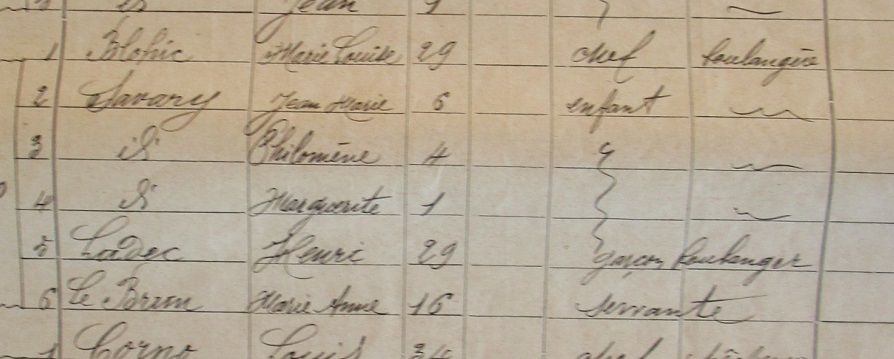 Jean 1
1 Blohic Marie Louise 29 chef boulangère
2 Savary Jean Marie 6 enfant
3 id Philomène 4
4 id Marguerite 1
5 Ladec Henri 29 garçon boulanger
6 Le Brun Marie Anne 16 servante
1 Corno Louis 34 chef